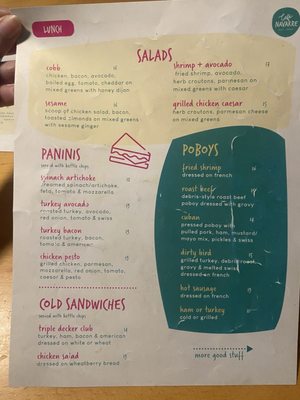 LUNCH
Café
NAVARRE
SALADS
cobb 16
chicken, bacon, avocado,
boiled egg, tomato, cheddar on
mixed greens with honey dijon
sesame
scoop of chicken salad, bacon,
toasted almonds on mixed greens
with sesame ginger
shrimp + avocado 17
fried shrimp, avocado,
herb croutons, parmesan on
mixed greens with caesar
grilled chicken caesar 15
herb croutons, parmesan cheese
on mixed greens
PANINIS
served with kettle chips
spinach artichoke
creamed spinach/artichoke,
feta, tomato & mozzarella
turkey avocado
roasted turkey, avocado,
red onion, tomato & swiss
turkey bacon
roasted turkey, bacon,
tomato & american
chicken pesto
grilled chicken, parmesan,
mozzarella, red onion, tomato,
caesar & pesto
COLD SANDWICHES
served with kettle chips
triple decker club
turkey, ham, bacon & american
dressed on white or wheat
chicken salad
dressed on wheatberry bread
POBOYS
fried shrimp
dressed on french
roast beef
debris-style roast beef
poboy dressed with gravy
cuban
pressed poboy with
pulled pork, ham, mustard/
mayo mix, pickles & swiss
dirty bird
grilled turkey, debris roast,
gravy & melted swiss
dressed on french
hot sausage
dressed on french
ham or turkey
cold or grilled
more good stuff